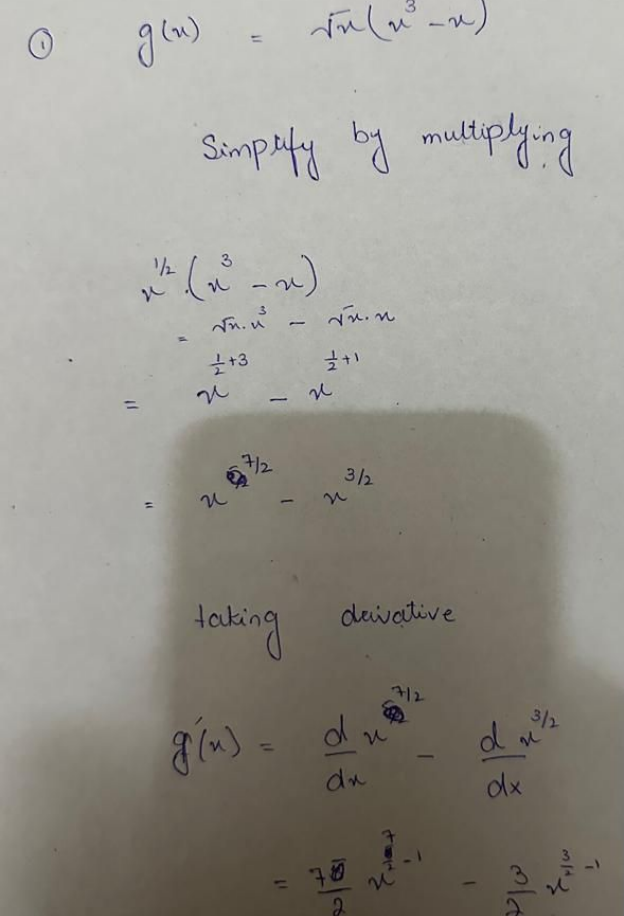 ① g(x) = √x(x³ – x)
Simplify by multiplying.
x^{1/2}.(x³ – x)
= √x.x³ – √x.x
= x^{1/2+3} – x^{1/2+1}
= x^{7/2} – x^{3/2}
taking deivative
g'(x) = d/dx x^{7/2} – d/dx x^{3/2}
= 7/2 x^{7/2-1} – 3/2 x^{3/2-1}